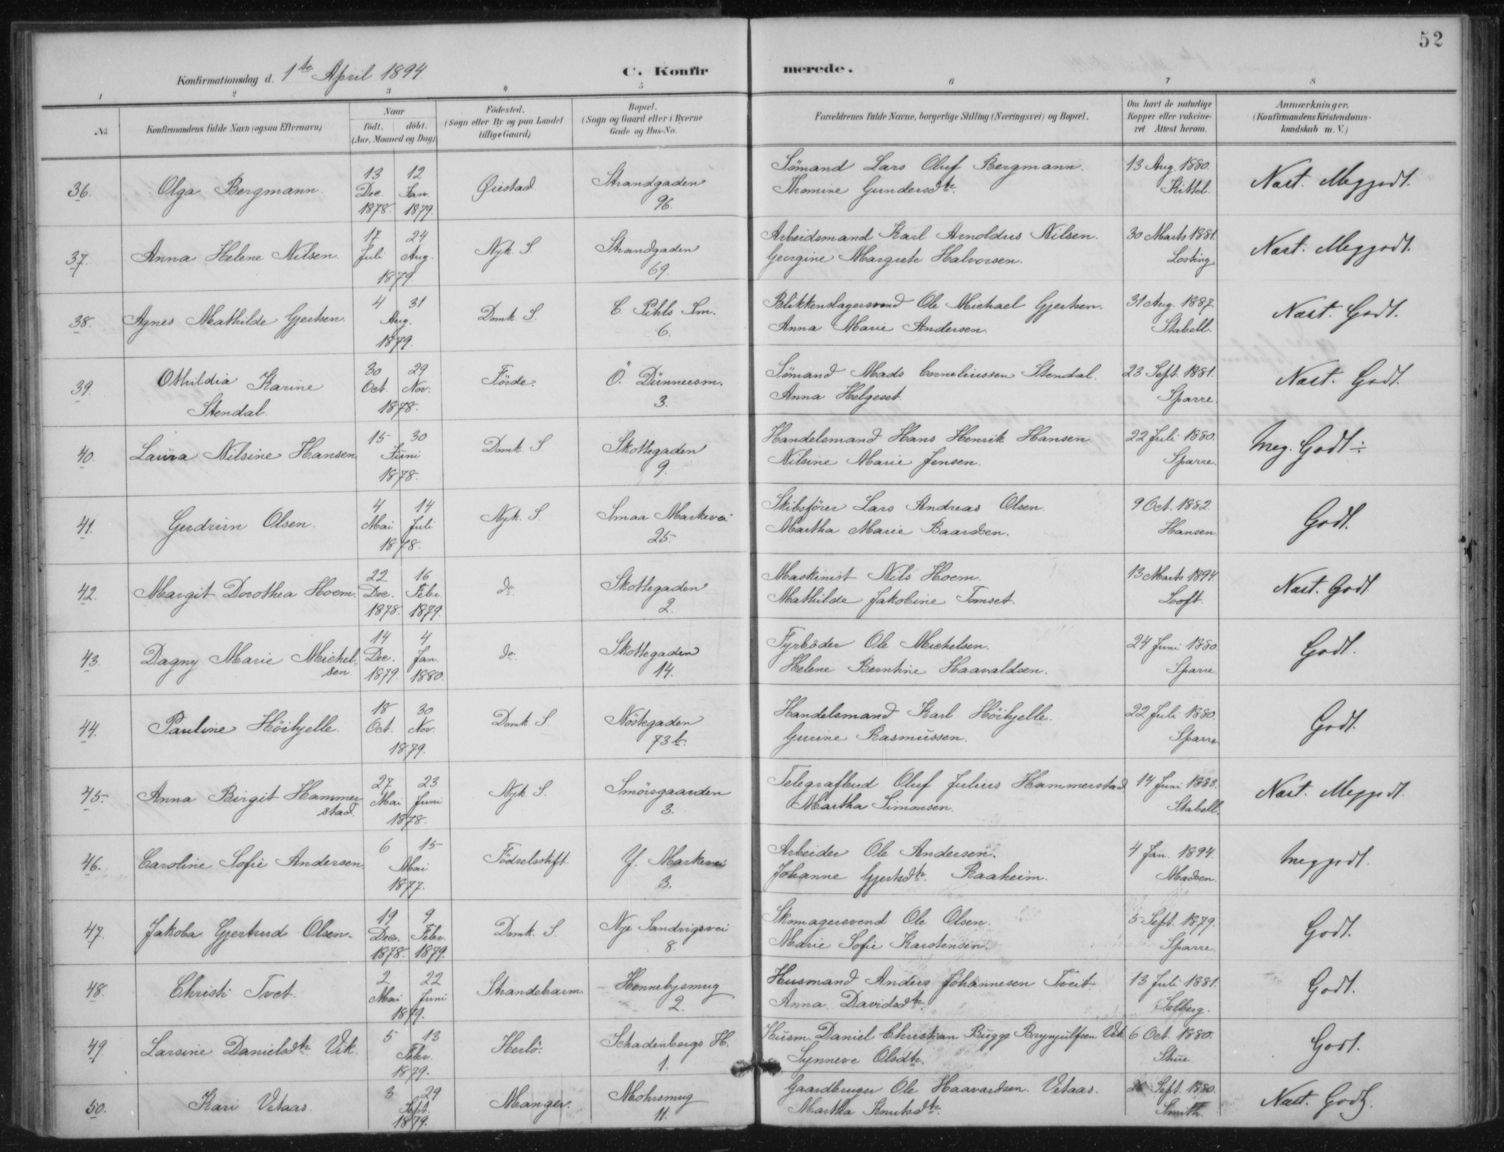 52
Konfirmationsdag d. 1ste April 1894. C. Konfirmerede.
1 2 3 4 5 6 7 8
No. Konfirmandens fulde Navn (ogsaa Efternavn) Naar født, døbt. (Aar, Maaned og Dag) Fødested. (Sogn eller By og paa Landet tillige Gaard) Bopæl. (Sogn og Gaard eller i Byerne Gade og Hus-No. Forældrenes fulde Navne, borgerlige Stilling (Næringsvei) og Bopæl. Om havt de naturlige Kopper eller vaccineret Attest herom. Anmærkninger. (Konfirmandens Kristendomskundskab m. V.)
36. Olga Bergmann. 13 Dec. 1878. 12 Jan. 1879. Øiestad Strandgaden 96. Sømand Lars Oluf Bergmann. Thomine Gundersdtr. 13 Aug 1880. Kittel. Næst. Meg godt.
37. Anna Helene Nilsen. 17 Juli 24 Aug. 1879 Nyk. S. Strandgaden 69 Arbeidsmand Karl Arnoldus Nilsen. Georgine Margrete Halvorsen. 30 Marts 1881. Losting Næst. Meg godt.
38. Agnes Mathilde Gjertsen. 4 31 Aug. 1879. Domk. S. C Pihls Sm. 6. Blikkenslagersvend Ole Michael Gjertsen. Anna Marie Andersen. 31 Aug. 1887. Stabell. Næst. Godt.
39. Othildia Karine Stendal. 30 Oct. 29 Nov. 1878. Førde. Ö. Dünnersm. 3. Sømand Mads Corneliussen Stendal. Anna Helgeset 23 Sept. 1881. Sparre. Næst. Godt.
40. Laura Nilsine Hansen 15 30 Juni 1878. Domk. S Skottegaden 9. Handelsmand Hans Henrik Hansen Nilsine Marie Jensen. 22 Juli 1880. Sparre. Meg. Godt.
41. Gudrun Olsen. 4 Mai 14 Juli 1878. Nyk. S. Smaa Markevei 25. Skibsfører Lars Andreas Olsen. Martha Marie Baardsen. 9 Oct. 1882. Hansen. Godt.
42. Margit Dorothea Hoem. 22 Dec. 1878. 16 Febr. 1879. do. Skottegaden 2. Maskinist Nils Hoem. Mathilde Jakobine Tomset. 13 Marts 1894. Looft. Næst. Godt
43. Dagny Marie Michelsen 14 Dec. 1879 4 Jan. 1880 do. Skottegaden 14. Fyrbøder Ole Michelsen. Helene Berntine Haavaldsen. 24 Juni 1880. Sparre Godt.
44. Pauline Höibjelle. 18 Oct. 30 Nov. 1879. Domk. S. Nöstegaden 73 b. Handelsmand Karl Höibjelle. Gurine Rasmussen. 22 Juli 1880. Sparre Godt.
45. Anna Birgit Hammerstad. 27 Mai 23 Juni 1878. Nyk. S. Smörsgaarden 3. Telegrafbud Oluf Julius Hammerstad Martha Simonsen. 14 Juni 1883. Stabell. Næst. Meg godt.
46. Caroline Sofie Andersen 6 15 Mai 1877. Födselsstift. Y. Markevei 3. Arbeider Ole Andersen. Johanne Gjertsdtr. Raaheim. 4 Jan. 1894. Madsen. Meg godt.
47. Jakoba Gjertrud Olsen. 19 Dec. 1878. 9 Febr. 1879. Domk. S. Nye Sandvigsvei 8. Skomagersvend Ole Olsen. Marie Sofie Karstensen. 5 Sept. 1879. Sparre. Godt.
48. Christi Tvet. 2 Mai 22 Juni 1879. Strandebarm Hennebysmug 2. Husmand Anders Johannesen Tveit. Anna Davidsdtr. 13 Juli 1881. Solberg. Godt.
49 Larsine Danielsdtr. Vik. 5 13 Febr. 1879. Herlö. Schadenbergs H. 1. Husm. Daniel Christian Bugge Brynjulfsen Vik Synneve Olsdtr. 6 Oct. 1880. Stue Godt.
50. Kari Vetaas. 3 29 Sept. 1879. Manger. Mohrsmug 11. Gaardbruger Ole Haavardsen Vetaas. Martha Knutsdtr. Sept. 1880. Smith. Næst. Godt.